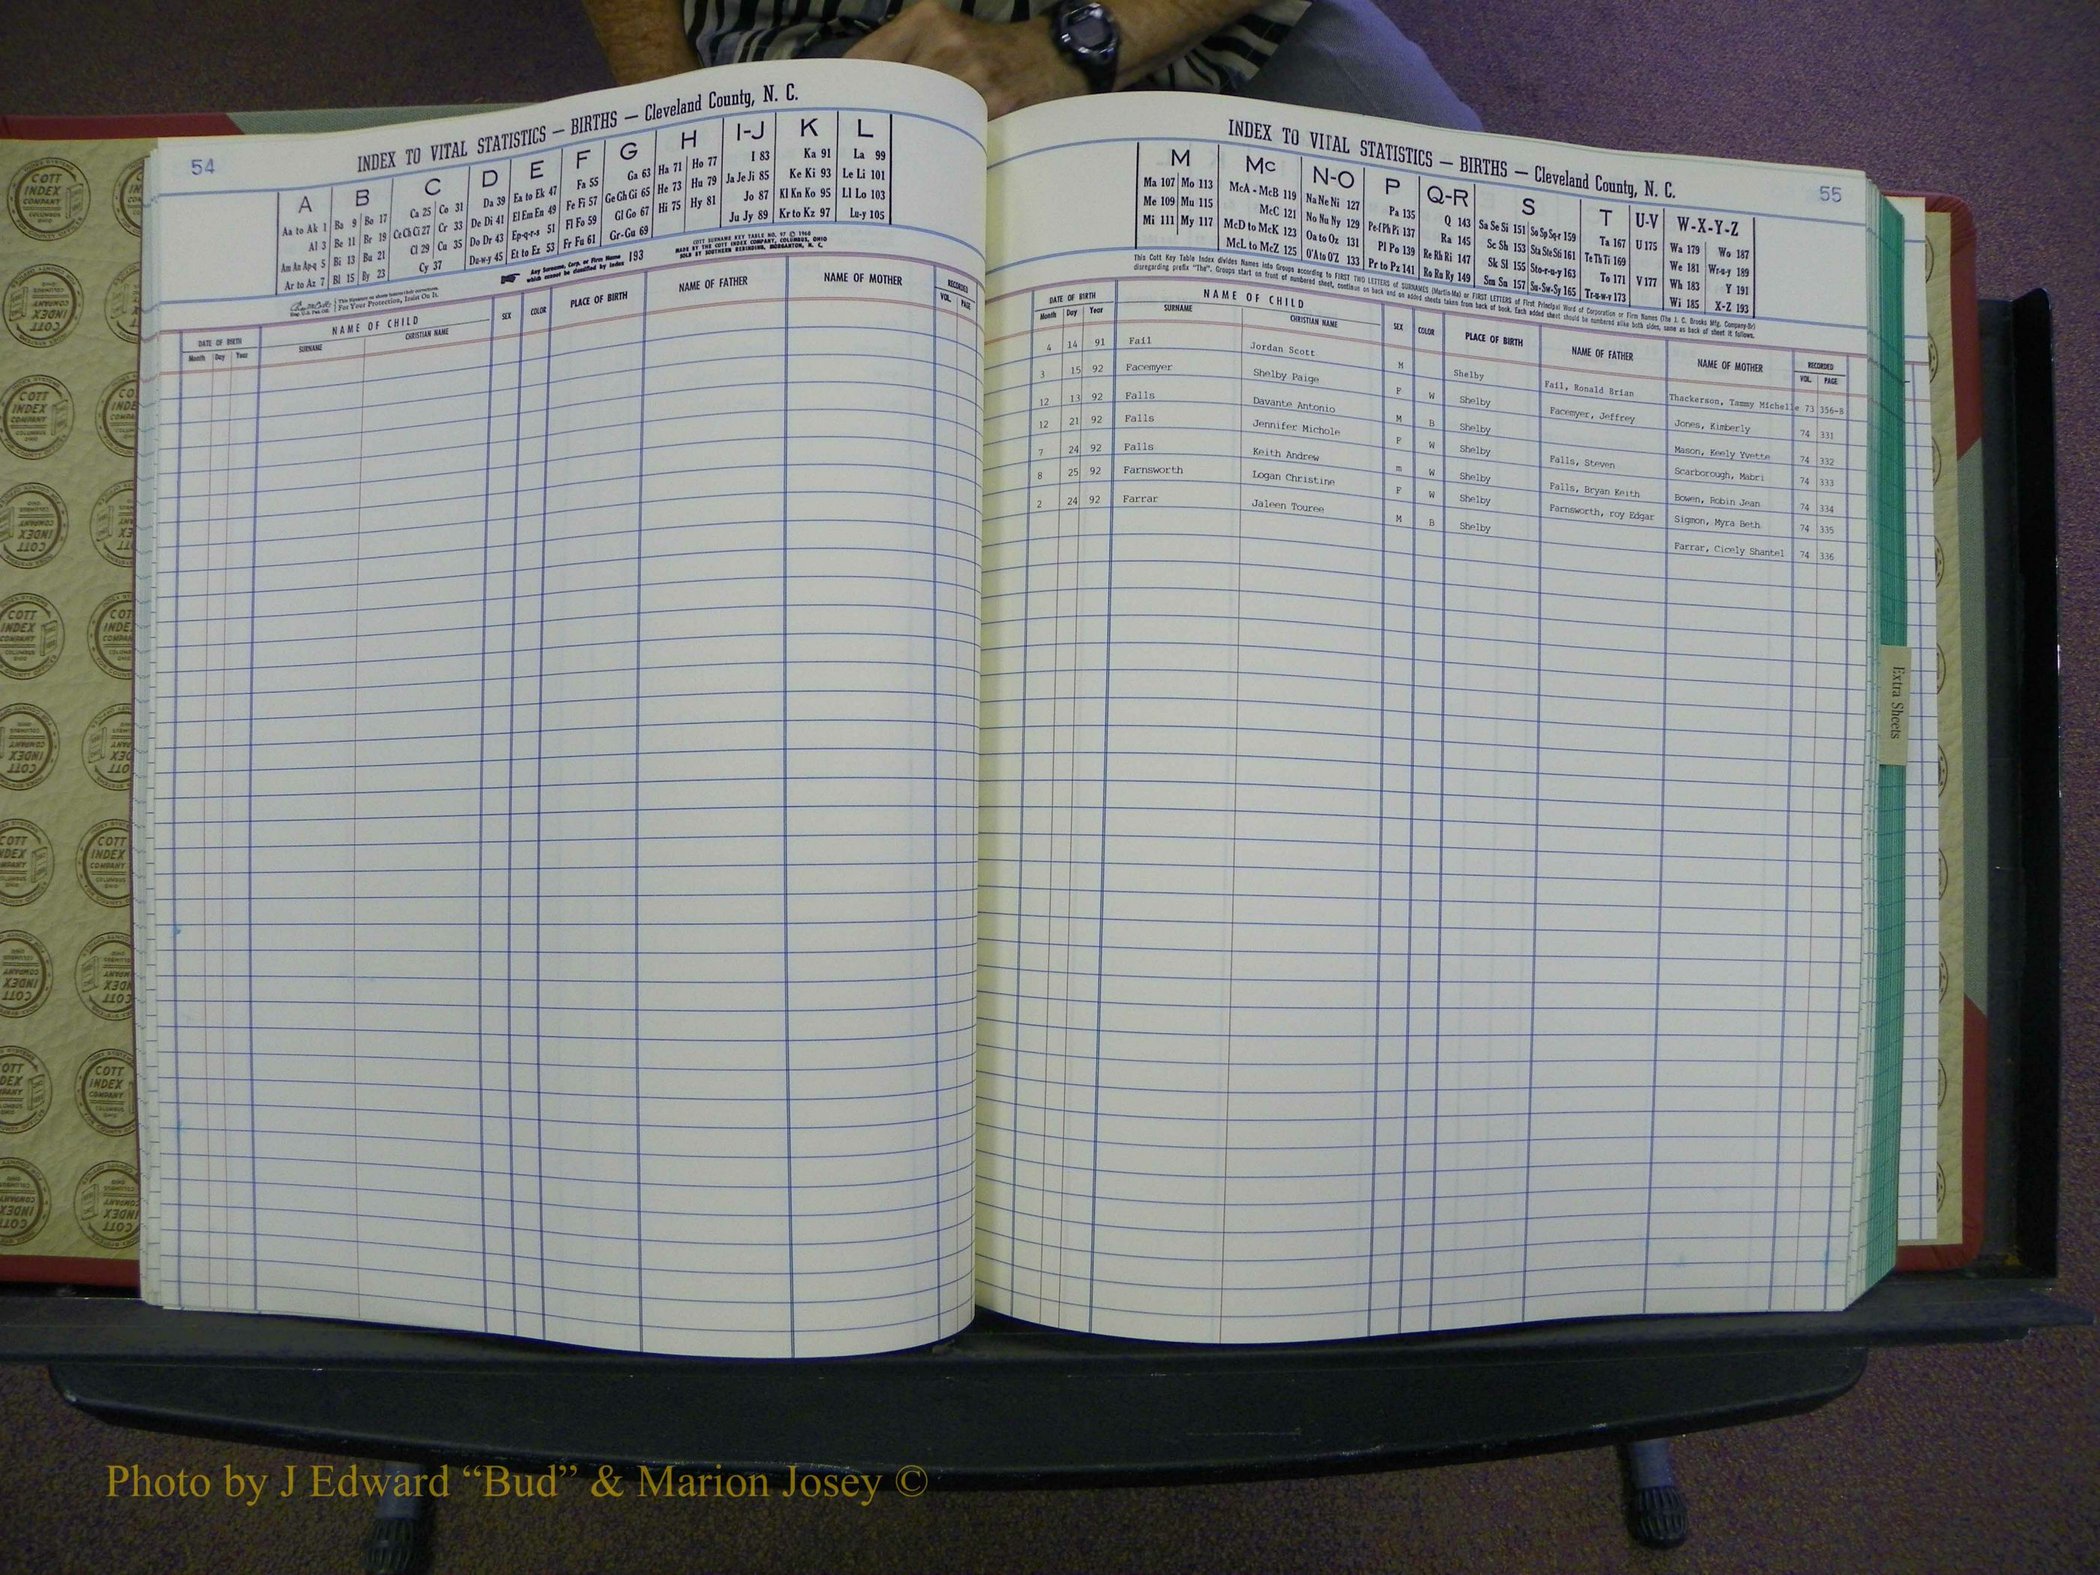 54
INDEX TO VITAL STATISTICS — BIRTHS — Cleveland County, N. C.
A B C D E F G H I-J K L
Aa to Ak 1 Ba 9 Bo 17 Ca 25 Co 31 Da 39 Ea to Ek 47 Fa 55 Ga 63 Ha 71 Ho 77 I 83 Ka 91 La 99
Al 3 Be 11 Br 19 Ce Ch Ci 27 Cr 33 De Di 41 El Em En 49 Fe Fi 57 Ge Gh Gi 65 He 73 Hu 79 Ja Je Ji 85 Ke Ki 93 Le Li 101
Am An Ap-q 5 Bi 13 Bu 21 Cl 29 Cu 35 Do Dr 43 Ep-q-r-s 51 Fl Fo 59 Gl Go 67 Hi 75 Hy 81 Jo 87 Kl Kn Ko 95 Ll Lo 103
Ar to Az 7 Bl 15 By 23 Cy 37 Du-w-y 45 Et to Ez 53 Fr Fu 61 Gr-Gu 69 Ju Jy 89 Kr to Kz 97 Lu-y 105
Any Surname, Corp. or Firm Name which cannot be classified by index 193
COTT SURNAME KEY TABLE NO. 97 © 1960
MADE BY THE COTT INDEX COMPANY, COLUMBUS, OHIO
SOLD BY SOUTHERN REBINDING, MORGANTON, N. C.
For Your Protection, Insist On It.
DATE OF BIRTH NAME OF CHILD SEX COLOR PLACE OF BIRTH NAME OF FATHER NAME OF MOTHER RECORDED
Month Day Year SURNAME CHRISTIAN NAME VOL. PAGE
INDEX TO VITAL STATISTICS — BIRTHS — Cleveland County, N. C.
55
M Mc N-O P Q-R S T U-V W-X-Y-Z
Ma 107 Mo 113 McA - McB 119 Na Ne Ni 127 Pa 135 Q 143 Sa Se Si 151 So Sp Sq-r 159 Ta 167 U 175 Wa 179 Wo 187
Me 109 Mu 115 McC 121 No Nu Ny 129 Pe-f Ph Pi 137 Ra 145 Sc Sh 153 Sta Ste Sti 161 Te Th Ti 169 We 181 Wr-u-y 189
Mi 111 My 117 McD to McK 123 Oa to Oz 131 Pl Po 139 Re Rh Ri 147 Sk Sl 155 Sto-r-u-y 163 To 171 V 177 Wh 183 Y 191
McL to McZ 125 O'A to O'Z 133 Pr to Pz 141 Ro Ru Ry 149 Sm Sn 157 Su-Sw-Sy 165 Tr-u-w-y 173 Wi 185 X-Z 193
This Cott Key Table Index divides Names into Groups according to FIRST TWO LETTERS of SURNAMES (Martin-Ma) or FIRST LETTERS of First Principal Word of Corporation or Firm Names (The J. C. Brooks Mfg. Company-Br)
disregarding prefix "The". Groups start on front of numbered sheet, continue on back and on added sheets taken from back of book. Each added sheet should be numbered alike both sides, same as back of sheet it follows.
DATE OF BIRTH NAME OF CHILD SEX COLOR PLACE OF BIRTH NAME OF FATHER NAME OF MOTHER RECORDED
Month Day Year SURNAME CHRISTIAN NAME VOL. PAGE
4 14 91 Fail Jordan Scott M Shelby Fail, Ronald Brian Thackerson, Tammy Michelle 73 356-B
3 15 92 Facemyer Shelby Paige F W Shelby Facemyer, Jeffrey Jones, Kimberly 74 331
12 13 92 Falls Davante Antonio M B Shelby Mason, Keely Yvette 74 332
12 21 92 Falls Jennifer Michole F W Shelby Falls, Steven Scarborough, Mabri 74 333
7 24 92 Falls Keith Andrew m W Shelby Falls, Bryan Keith Bowen, Robin Jean 74 334
8 25 92 Farnsworth Logan Christine F W Shelby Farnsworth, roy Edgar Sigmon, Myra Beth 74 335
2 24 92 Farrar Jaleen Touree M B Shelby Farrar, Cicely Shantel 74 336
Extra Sheets
COTT INDEX COMPANY COLUMBUS OHIO
Photo by J Edward “Bud” & Marion Josey ©